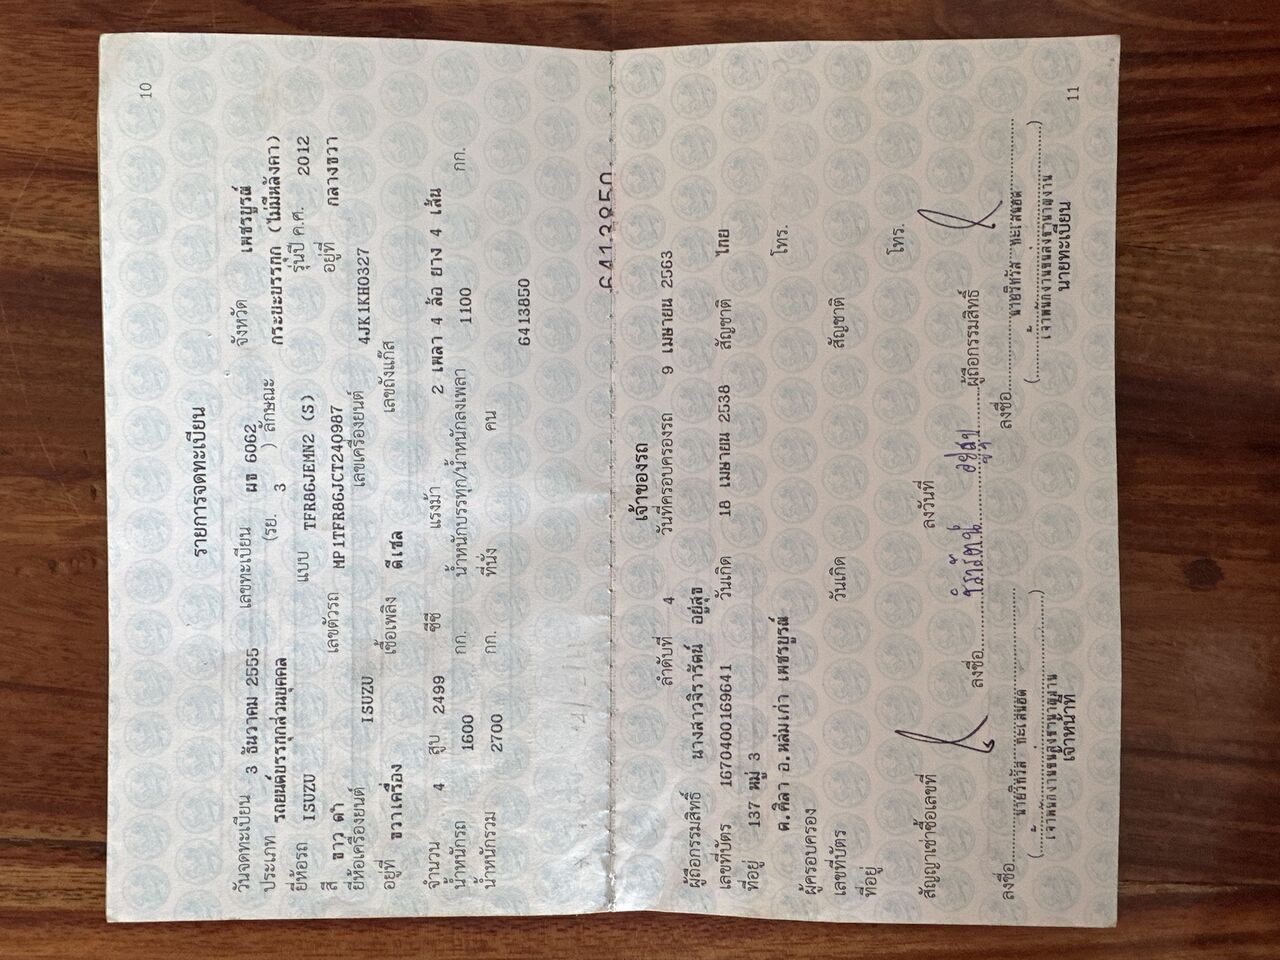 10
รายการจดทะเบียน
วันจดทะเบียน 3 ธันวาคม 2555 เลขทะเบียน ผช 6062 จังหวัด เพชรบูรณ์
ประเภท รถยนต์บรรทุกส่วนบุคคล (รย. 3 ) ลักษณะ กระบะบรรทุก (ไม่มีหลังคา)
ยี่ห้อรถ ISUZU แบบ TFR86JEMN2 (S) รุ่นปี ค.ศ. 2012
สี ขาว ดำ เลขตัวรถ MP1TFR86JCT240987 อยู่ที่ กลางขวา
ยี่ห้อเครื่องยนต์ ISUZU เลขเครื่องยนต์ 4JK1KH0327
อยู่ที่ ขวาเครื่อง เชื้อเพลิง ดีเซล เลขถังแก๊ส
จำนวน 4 สูบ 2499 ซีซี แรงม้า 2 เพลา 4 ล้อ ยาง 4 เส้น
น้ำหนักรถ 1600 กก. น้ำหนักบรรทุก/น้ำหนักลงเพลา 1100 กก.
น้ำหนักรวม 2700 กก. ที่นั่ง คน
6413850
6413850
เจ้าของรถ
ลำดับที่ 4 วันที่ครอบครองรถ 9 เมษายน 2563
ผู้ถือกรรมสิทธิ์ นางสาวจิรารัตน์ อยู่สุข
เลขที่บัตร 1670400169641 วันเกิด 18 เมษายน 2538 สัญชาติ ไทย
ที่อยู่ 137 หมู่ 3
ต.ศิลา อ.หล่มเก่า เพชรบูรณ์ โทร.
ผู้ครอบครอง
เลขที่บัตร วันเกิด สัญชาติ
ที่อยู่ โทร.
สัญญาเช่าซื้อเลขที่ ลงวันที่
ลงชื่อ จิรารัตน์ อยู่สุข ผู้ถือกรรมสิทธิ์
ลงชื่อ ลงชื่อ
เจ้าพนักงานขนส่งชำนาญงาน เจ้าพนักงานขนส่งชำนาญงาน
เจ้าหน้าที่ นายทะเบียน
11